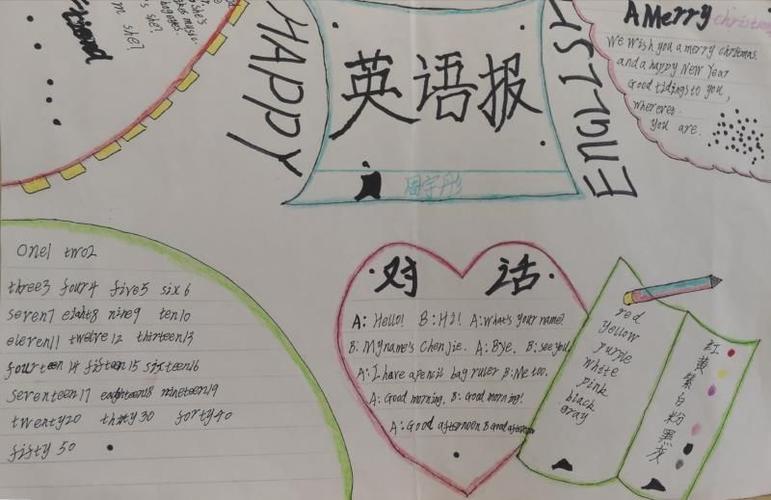 HAPPY
英语报
ENGLISH
A Merry christmas
We wish you a merry christmas
and a happy New Year
Good tidings to you,
wherever
you are.
she's
she's music
m she?
's she?
friend
one1 two2
three3 four4 five5 six6
seven7 eight8 nine9 ten10
eleven11 twelve12 thirteen13
fourteen14 fifteen15 sixteen16
seventeen17 eighteen18 nineteen19
twenty20 thirty30 forty40
fifty 50
对话
A: Hello! B: Hi! A: What's your name?
B: My name's Chen Jie. A: Bye. B: see you
A: I have a pencil bag ruler B: Me too.
A: Good morning. B: Good morning!
A: Good afternoon B Good afternoon
red
yellow
purple
white
pink
black
gray
红
黄
紫
白
粉
黑
灰